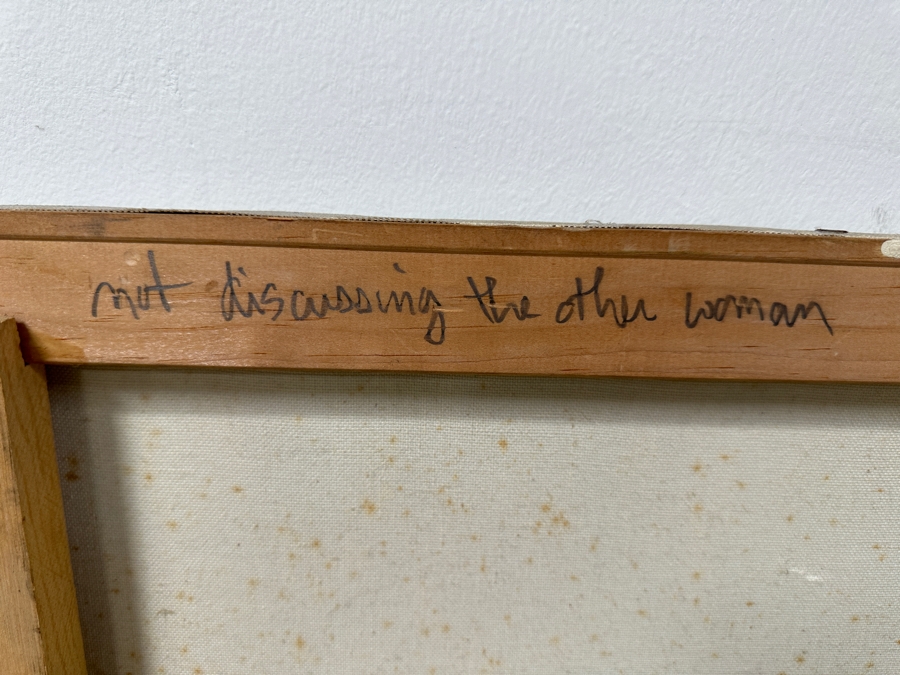 not discussing the other woman